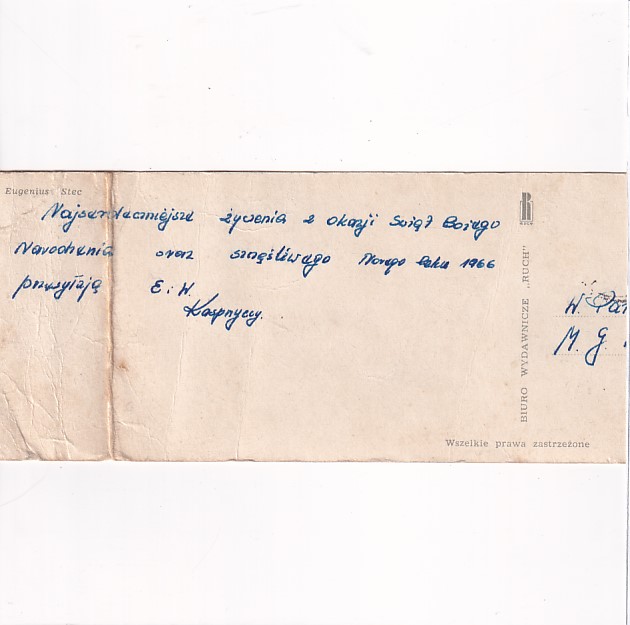 Eugenius Stec
Najserdeczniejsze życzenia z okazji Świąt Bożego
Narodzenia oraz szczęśliwego Nowego Roku 1966
przesyłają E. i W.
Kasprzyccy.
BIURO WYDAWNICZE „RUCH"
RUCH
W. Pań
M. G.
Wszelkie prawa zastrzeżone